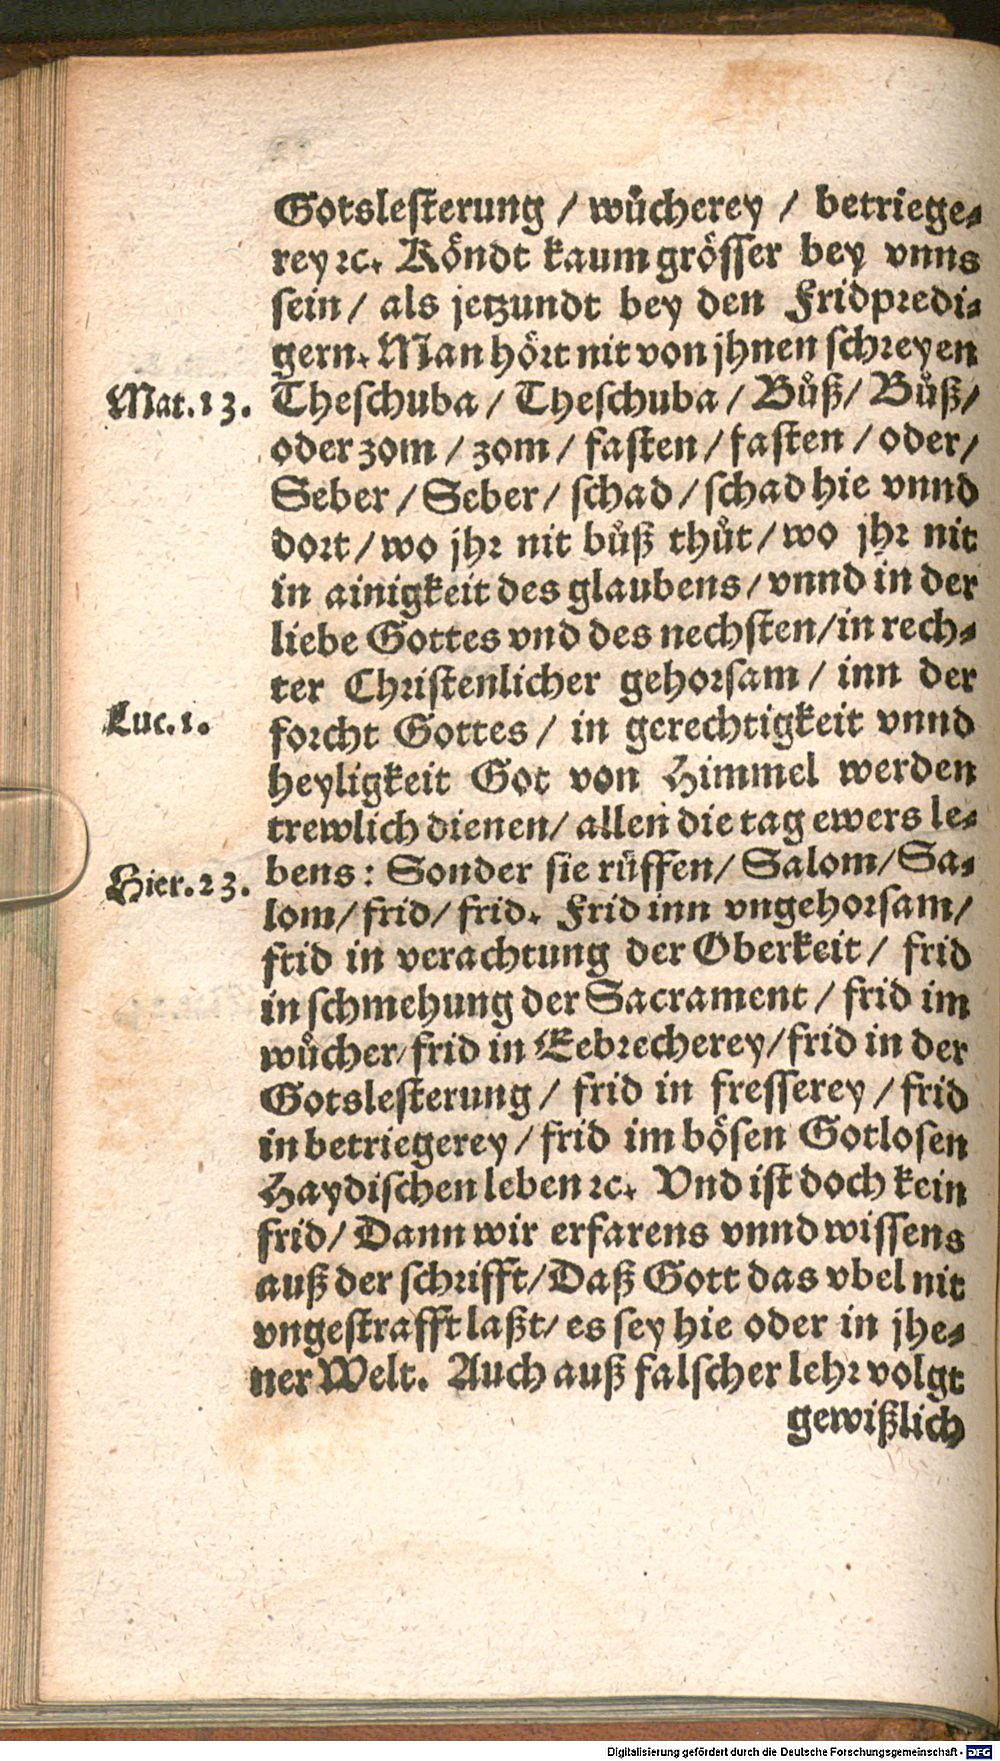 Gotslesterung / wůcherey / betriege⸗
rey ꝛc. Köndt kaum grösser bey vnns
sein / als jetzundt bey den Fridpredi⸗
gern. Man hört nit von jhnen schreyen
Mat. 13. Theschuba / Theschuba / Bůß / Bůß /
oder zom / zom / fasten / fasten / oder /
Seber / Seber / schad / schad hie vnnd
dort / wo jhr nit bůß thůt / wo jhr nit
in ainigkeit des glaubens / vnnd in der
liebe Gottes vnd des nechsten / in rech⸗
ter Christenlicher gehorsam / inn der
Luc. 1. forcht Gottes / in gerechtigkeit vnnd
heyligkeit Got von Himmel werden
trewlich dienen / allen die tag ewers le⸗
Hier. 23. bens : Sonder sie rüffen / Salom / Sa⸗
lom / frid / frid. Frid inn vngehorsam /
ftid in verachtung der Oberkeit / frid
in schmehung der Sacrament / frid im
wůcher / frid in Eebrecherey / frid in der
Gotslesterung / frid in fresserey / frid
in betriegerey / frid im bösen Gotlosen
Haydischen leben ꝛc. Vnd ist doch kein
frid / Dann wir erfarens vnnd wissens
auß der schrifft / Daß Gott das vbel nit
vngestrafft laßt / es sey hie oder in jhe⸗
ner Welt. Auch auß falscher lehr volgt
gewißlich
Digitalisierung gefördert durch die Deutsche Forschungsgemeinschaft - DFG